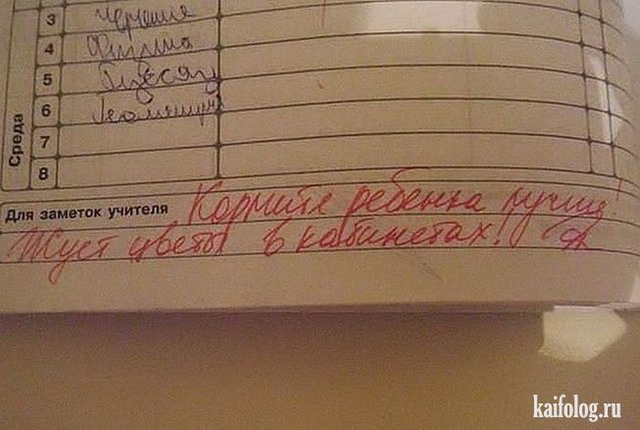 3 Черчение
4 Физика
5
6 Геометрия
7
8
Среда
Для заметок учителя Кормите ребенка лучше!
Жует цветы в кабинетах!
kaifolog.ru